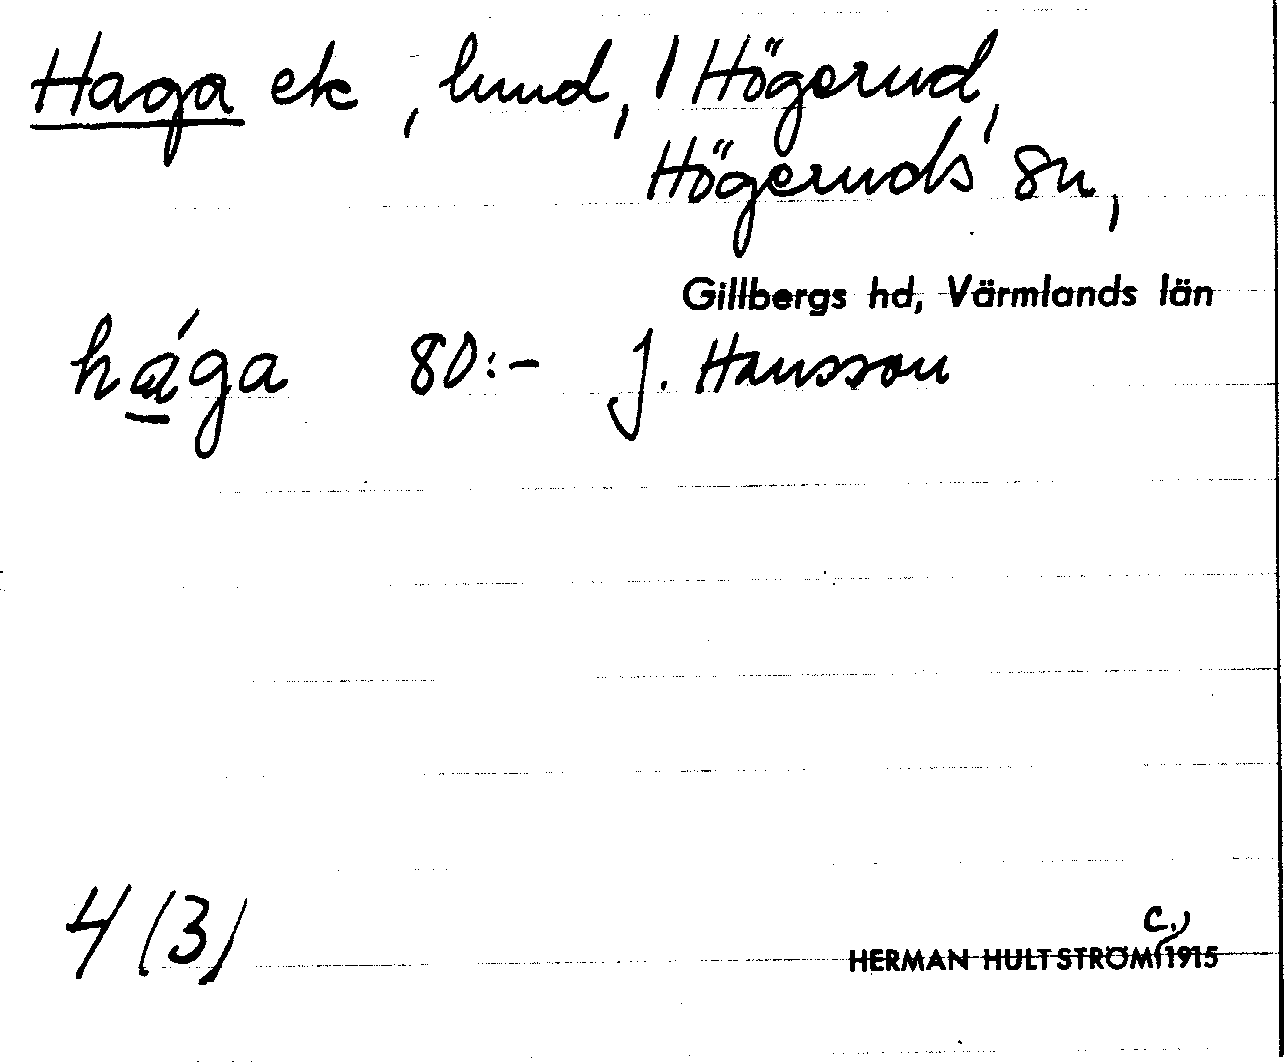 Haga ek, lund, 1 Högerud,
Högeruds sn,
Gillbergs hd, Värmlands län
hága 80:- J. Hansson
4 (3)
c.)
HERMAN HULTSTRÖM 1915